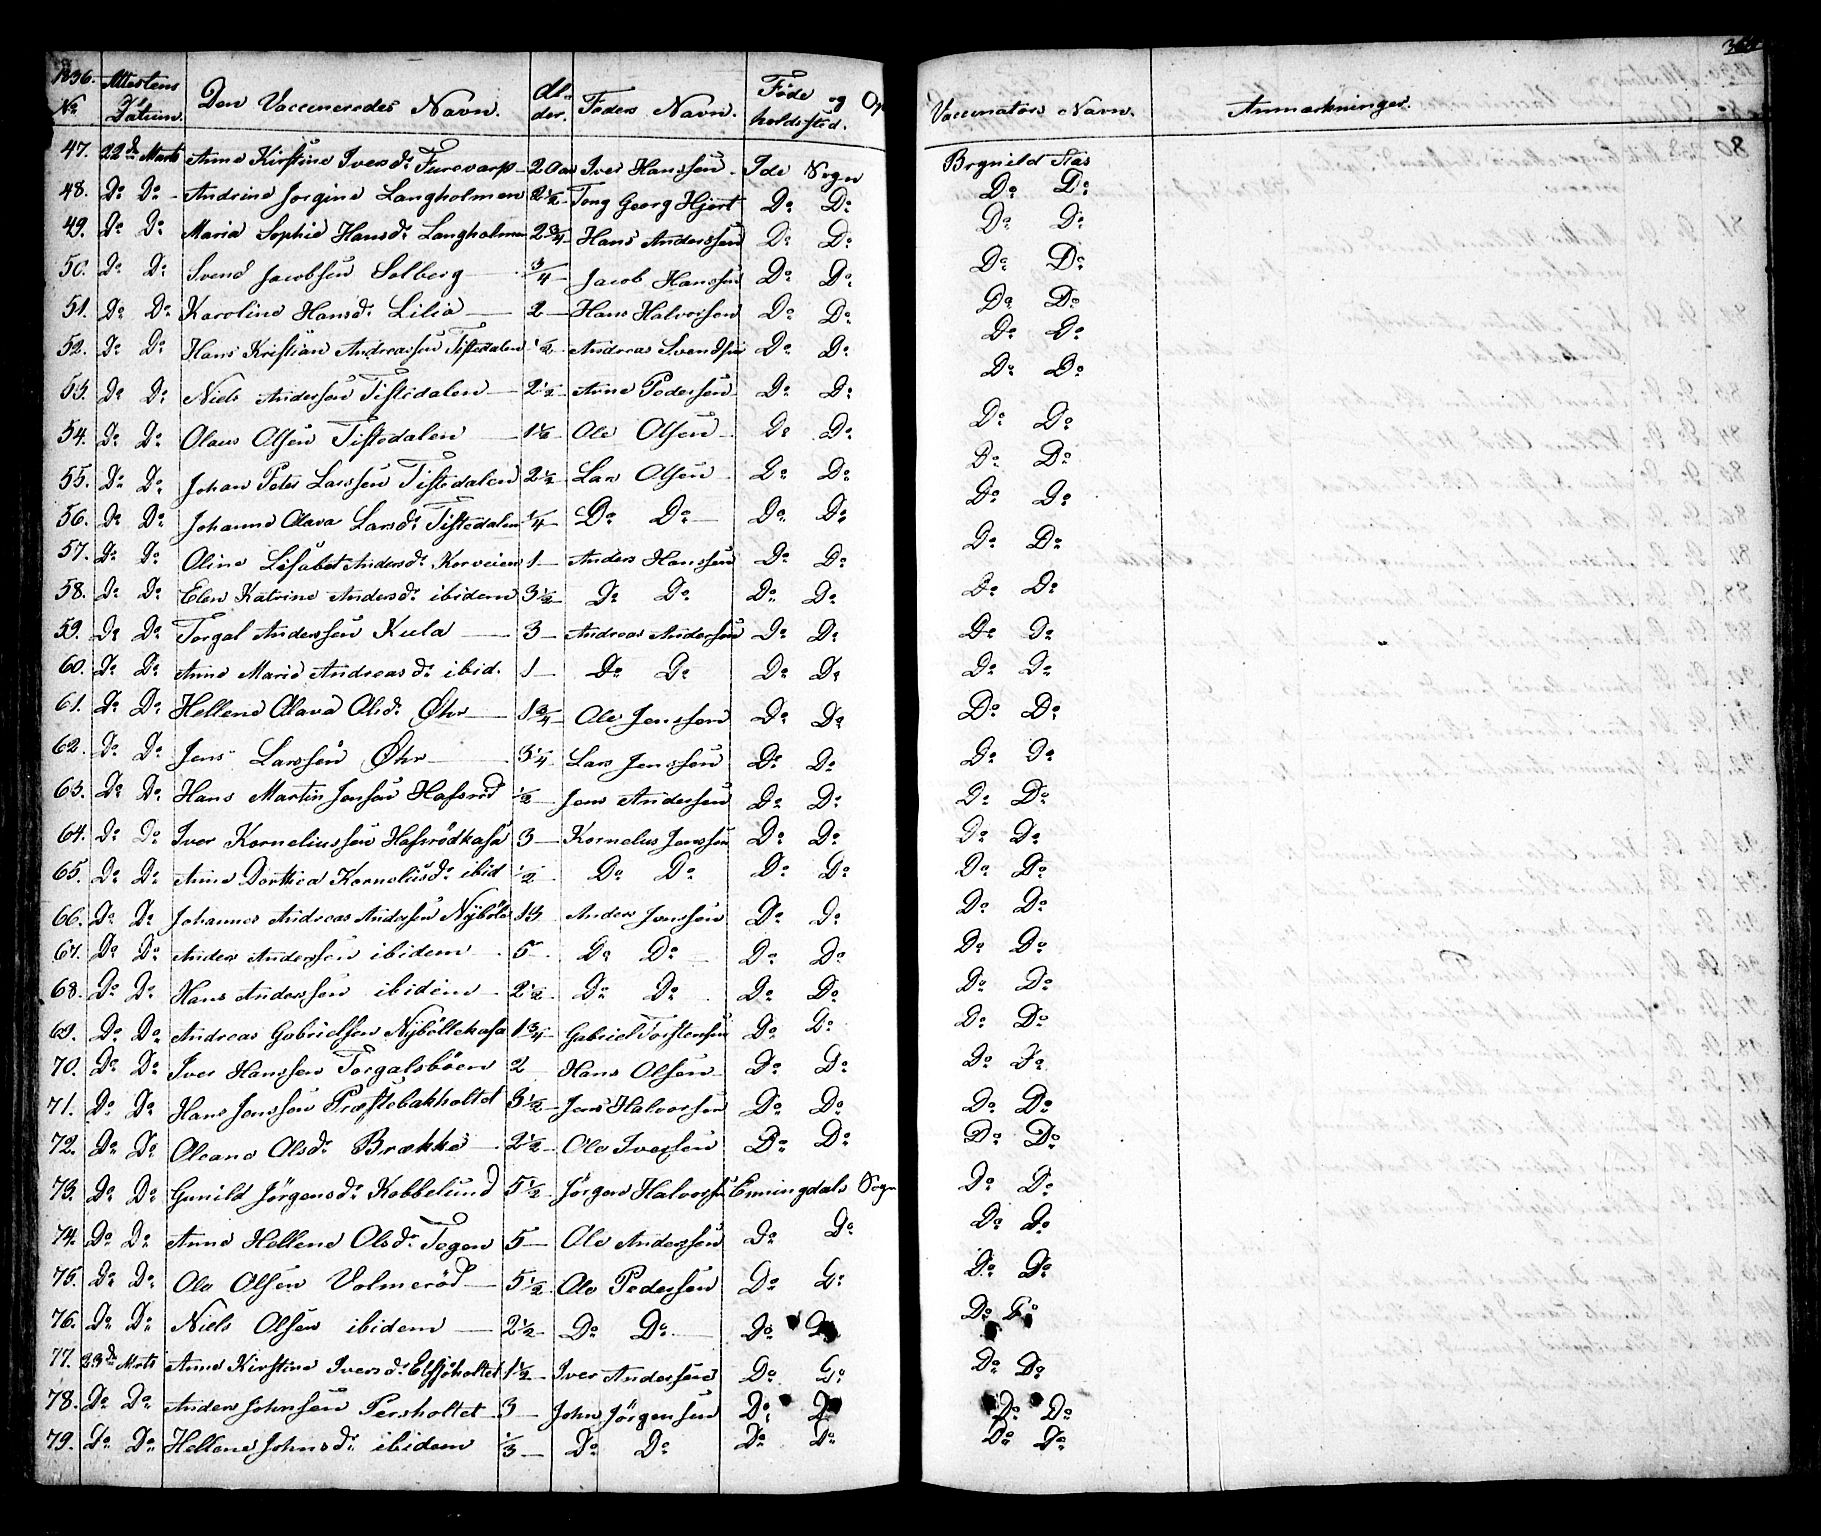 1836. Attestens Den Vaccineredes Navn. Al- Faders Navn. Føde og Op Vaccinatørs Navn. Anmærkninger.
No Datum. der. holdssted.
47. 22de Marts Anne Kirstine Iversdr Furevarp 2 Aar Iver Hanssen Ide Sogn Brynild Aas
48. Do Do Andrine Jorgine Langholmen 2 1/2 Tong Georg Hjort Do Do Do Do
49. Do Do Maria Sophie Hansdr Langholmen 2 3/4 Hans Anderssen Do Do Do Do
50. Do Do Svend Jacobsen Solberg 3/4 Jacob Hanssen Do Do Do Do
51. Do Do Karoline Hansdr Lilia 2 Hans Halvorsen Do Do Do Do
52. Do Do Hans Kristian Andreassen Tistedalen 1/2 Andreas Svendsen Do Do Do Do
53. Do Do Niels Andersen Tistedalen 2 1/2 Arne Pedersen Do Do Do Do
54. Do Do Olaus Olsen Tistedalen 1 1/2 Ole Olsen Do Do Do Do
55. Do Do Johan Peter Larssen Tistedalen 2 1/2 Lars Olsen Do Do Do Do
56. Do Do Johanne Olava Larsdr Tistedalen 1/4 Do Do Do Do Do Do
57. Do Do Oline Lisabet Andersdr Korveien 1 Anders Hanssen Do Do Do Do
58. Do Do Elen Katrine Andersdr ibidem 3 1/2 Do Do Do Do Do Do
59. Do Do Torgal Anderssen Kula 3 Andreas Andersen Do Do Do Do
60. Do Do Anne Marie Andreasdr ibid. 1 Do Do Do Do Do Do
61. Do Do Hellene Olava Olsdr Øhr 1 3/4 Ole Jenssen Do Do Do Do
62. Do Do Jens Larssen Øhr 3 1/4 Lars Jenssen Do Do Do Do
63. Do Do Hans Martin Jensen Hafsrød 1/2 Jens Andersen Do Do Do Do
64. Do Do Iver Korneliussen Hafsrødkasa 3 Kornelius Jenssen Do Do Do Do
65. Do Do Anne Dorthea Korneliusdr ibid 1/2 Do Do Do Do Do Do
66. Do Do Johannes Andreas Andersen Nybøle 13 Anders Jenssen Do Do Do Do
67. Do Do Anders Anderssen ibidem 5 Do Do Do Do Do Do
68. Do Do Hans Anderssen ibidem 2 1/2 Do Do Do Do Do Do
69. Do Do Andreas Gabrielsen Nybøllekasa 1 3/4 Gabriel Torstensen Do Do Do Do
70. Do Do Iver Hanssen Torgalsbøen 2 Hans Olsen Do Do Do Do
71. Do Do Hans Jenssen Præstebakholtet 3 1/2 Jens Halvorsen Do Do Do Do
72. Do Do Oleane Olsdr Brække 2 1/2 Ole Iversen Do Do Do Do
73. Do Do Gunild Jørgensdr Kobbelund 5 1/2 Jørgen Halvorsen Enningdals Sogn Do Do
74. Do Do Anne Hellene Olsdr Tegen 5 Ole Anderssen Do Do Do Do
75. Do Do Ole Olsen Volmerød 5 1/2 Ole Pedersen Do Do Do Do
76. Do Do Niels Olsen ibidem 2 1/2 Do Do Do Do Do Do
77. 23de Marts Anne Kirstine Iversdr Elsjøholtet 1 1/2 Iver Andersen Do Do Do Do
78. Do Do Anders Johnsen Persholtet 3 John Jørgensen Do Do Do Do
79. Do Do Hellene Johnsdr ibidem 1/3 Do Do Do Do Do Do